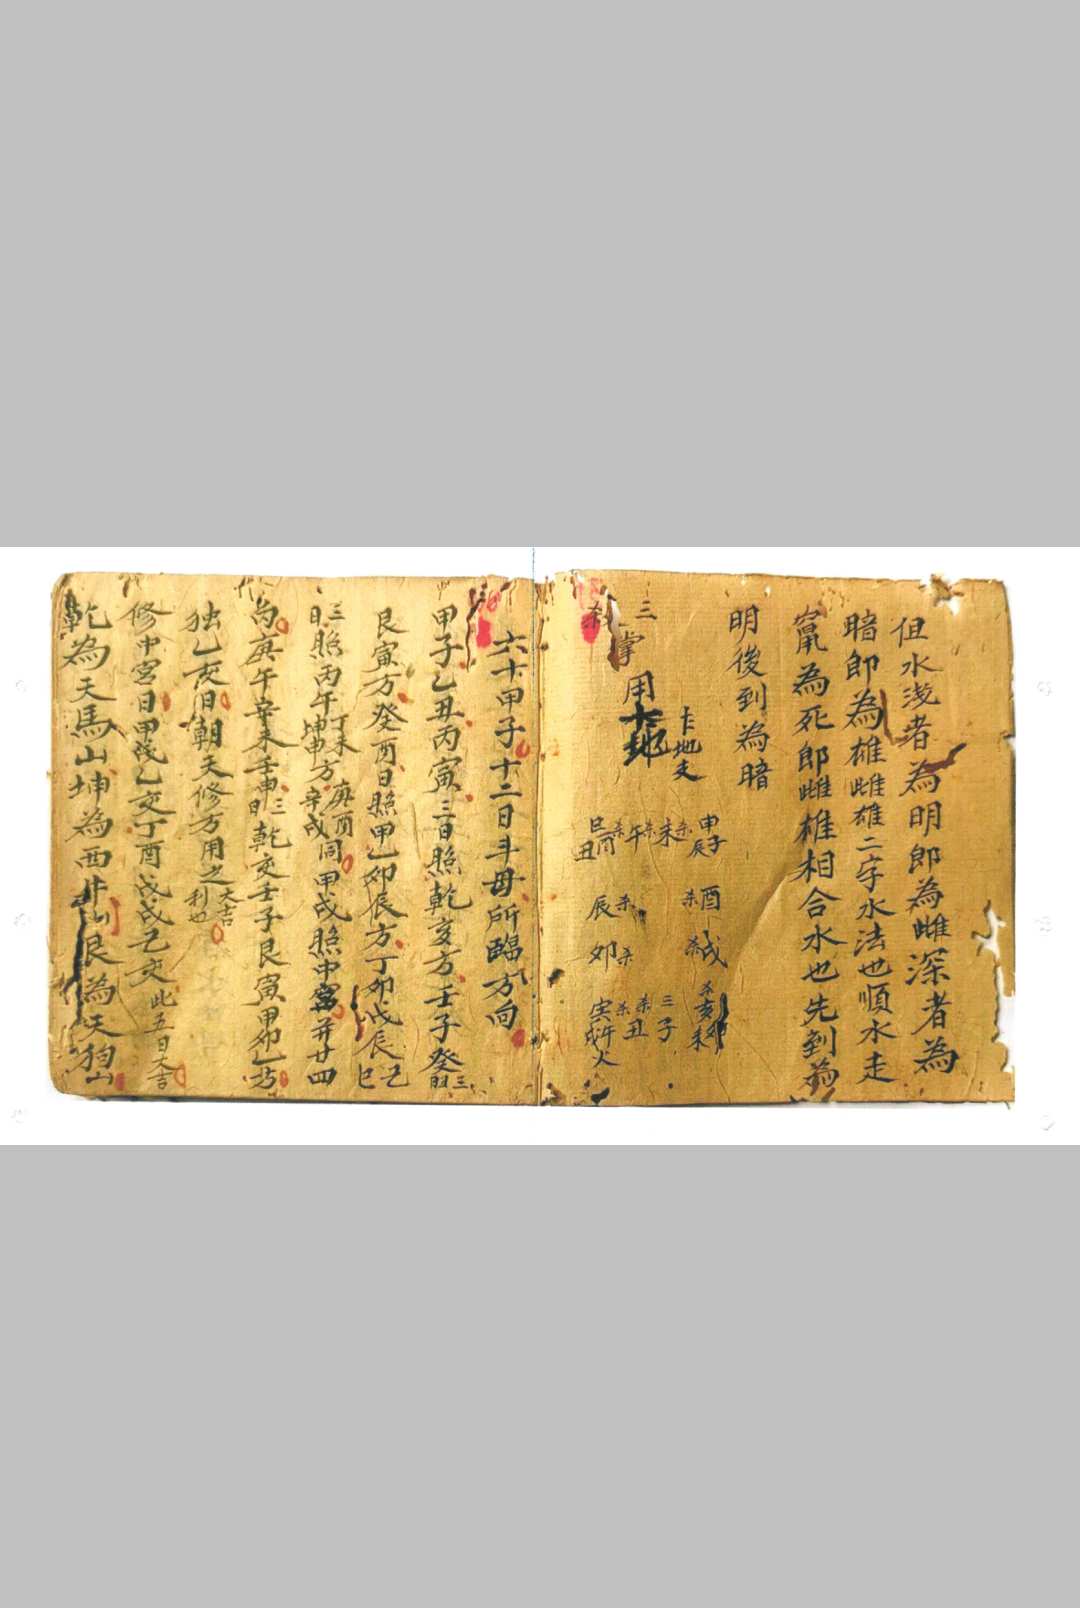 但水浅者為明郎為雌深者為
暗郎為雄雌雄二字水法也順水走
為死郎雌雄相合水也先到為
明後到為暗
三
殺掌
用
十地支
申子辰
杀酉
戌
杀亥卯未
未杀
午杀
三子
杀丑
巳酉丑
辰杀
卯杀
寅午戌火
六十甲子十二日斗母所臨方向
甲子乙丑丙寅三日照乾亥方壬子癸三日
艮寅方癸酉日照甲乙卯辰方丁卯戊辰己巳
三日照丙午丁未坤申方庚酉辛戌同甲戌照中宮并廿四
向庚午辛未壬申三日乾亥壬子艮寅甲卯乙方
独乙亥日朝天修方用之大吉利也
修中宮日甲戌乙亥丁酉戊戌己亥此五日大吉
乾為天馬山坤為西牛山艮為天狗山